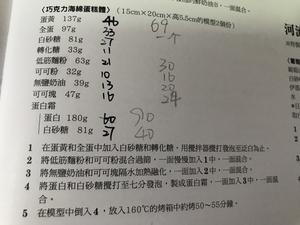 的鮮奶油8
一面混合。
〈巧克力海綿蛋糕體〉(15cm×20cm×高5.5cm的模型2個份)
蛋黃 137g 46 69
全蛋 97g 33 一个
白砂糖 81g 27
轉化糖 33g 11
低筋麵粉 63g 21 30
可可粉 32g 10 16
無鹽奶油 39g 13 20
可可塊 47g 16 24
蛋白霜
蛋白 180g 60 90
白砂糖 81g 27 40
1 在蛋黃和全蛋中加入白砂糖和轉化糖，用攪拌器攪打發泡至泛白為止。
2 將低筋麵粉和可可粉混合過篩，一面慢慢加入1中，一面混合。
3 將無鹽奶油和可可塊隔水加熱融化，一面加入2中，一面混合。
4 將蛋白和白砂糖攪打至七分發泡，製成蛋白霜，一面加入3中，一面混合。
5 在模型中倒入4，放入160℃的烤箱中約烤50～55分鐘。